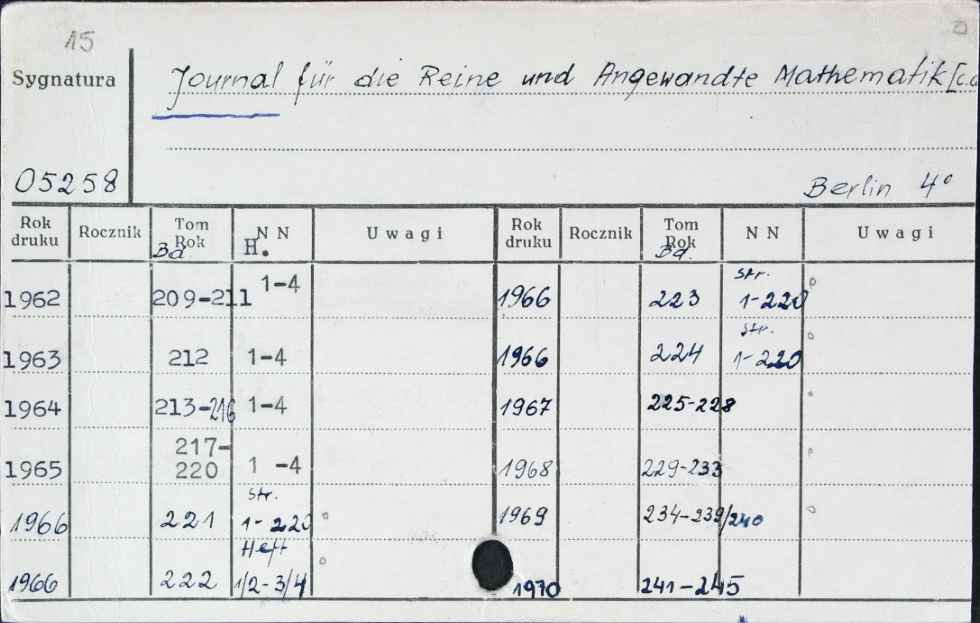 15
Sygnatura
Journal für die Reine und Angewandte Mathematik [c.d
05258
Berlin 4°
Rok druku Rocznik Tom Rok Bd. NN H. Uwagi Rok druku Rocznik Tom Rok Bd. NN Uwagi
1962 209-211 1-4 1966 223 Str. 1-220
1963 212 1-4 1966 224 Str. 1-220
1964 213-216 1-4 1967 225-228
1965 217-220 1 -4 1968 229-233
1966 221 Str. 1-220 1969 234-239/240
1966 222 Heft 1/2-3/4 1970 241-245